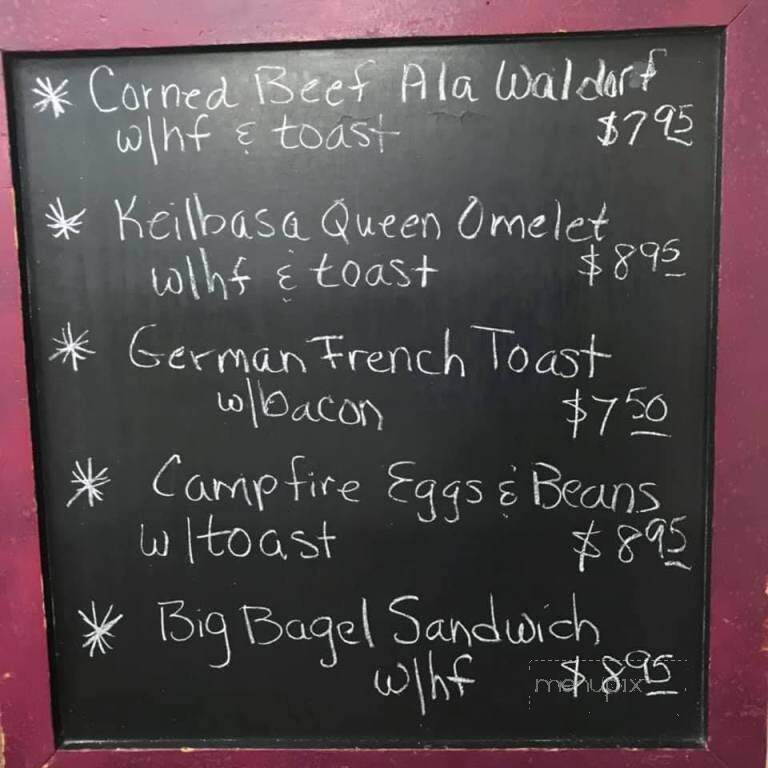 * Corned Beef Ala Waldorf
w/hf & toast $7.95
* Keilbasa Queen Omelet
w/hf & toast $8.95
* German French Toast
w/bacon $7.50
* Campfire Eggs & Beans
w/toast $8.95
* Big Bagel Sandwich
w/hf $8.95
menupix